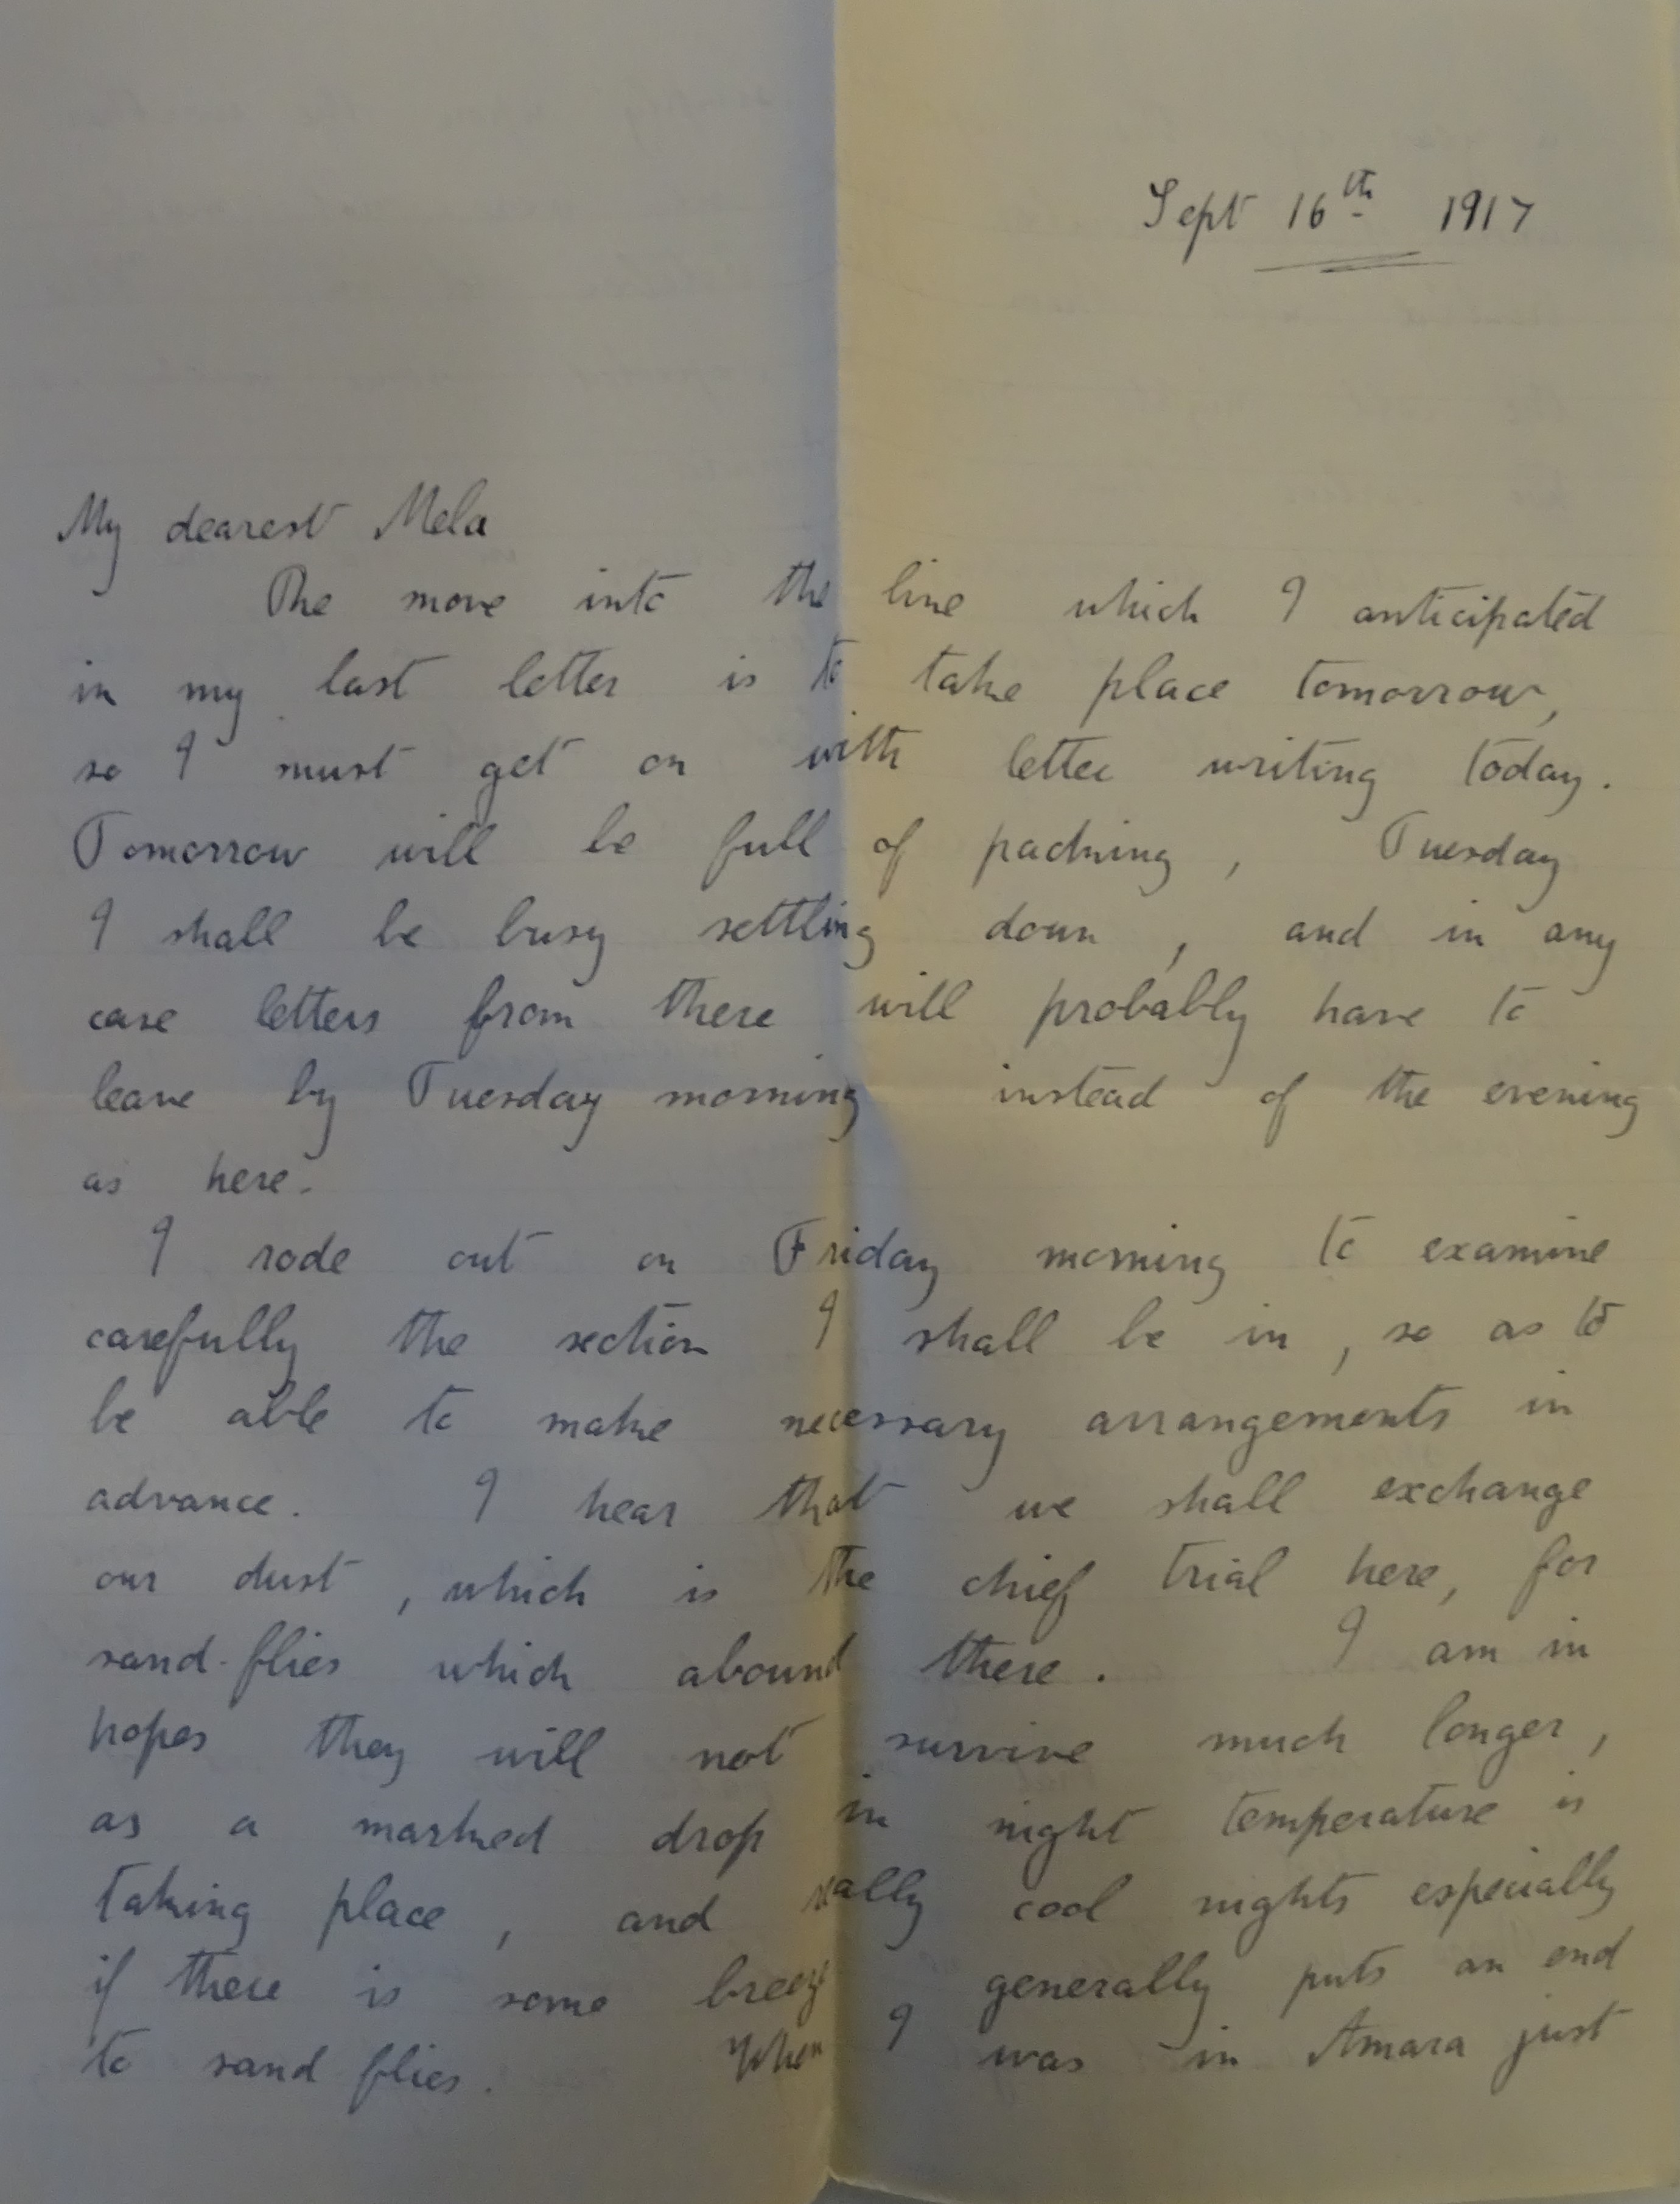 Sept 16th 1917
My dearest Mela
The move into the line which I anticipated
in my last letter is to take place tomorrow,
so I must get on with letter writing today.
Tomorrow will be full of packing, Tuesday
I shall be busy settling down, and in any
case letters from there will probably have to
leave by Tuesday morning instead of the evening
as here.
I rode out on Friday morning to examine
carefully the section I shall be in, so as to
be able to make necessary arrangements in
advance. I hear that we shall exchange
our dust, which is the chief trial here, for
sand-flies which abound there. I am in
hopes they will not survive much longer,
as a marked drop in night temperature is
taking place, and really cool nights especially
if there is some breeze generally puts an end
to sand flies. When I was in Amara just